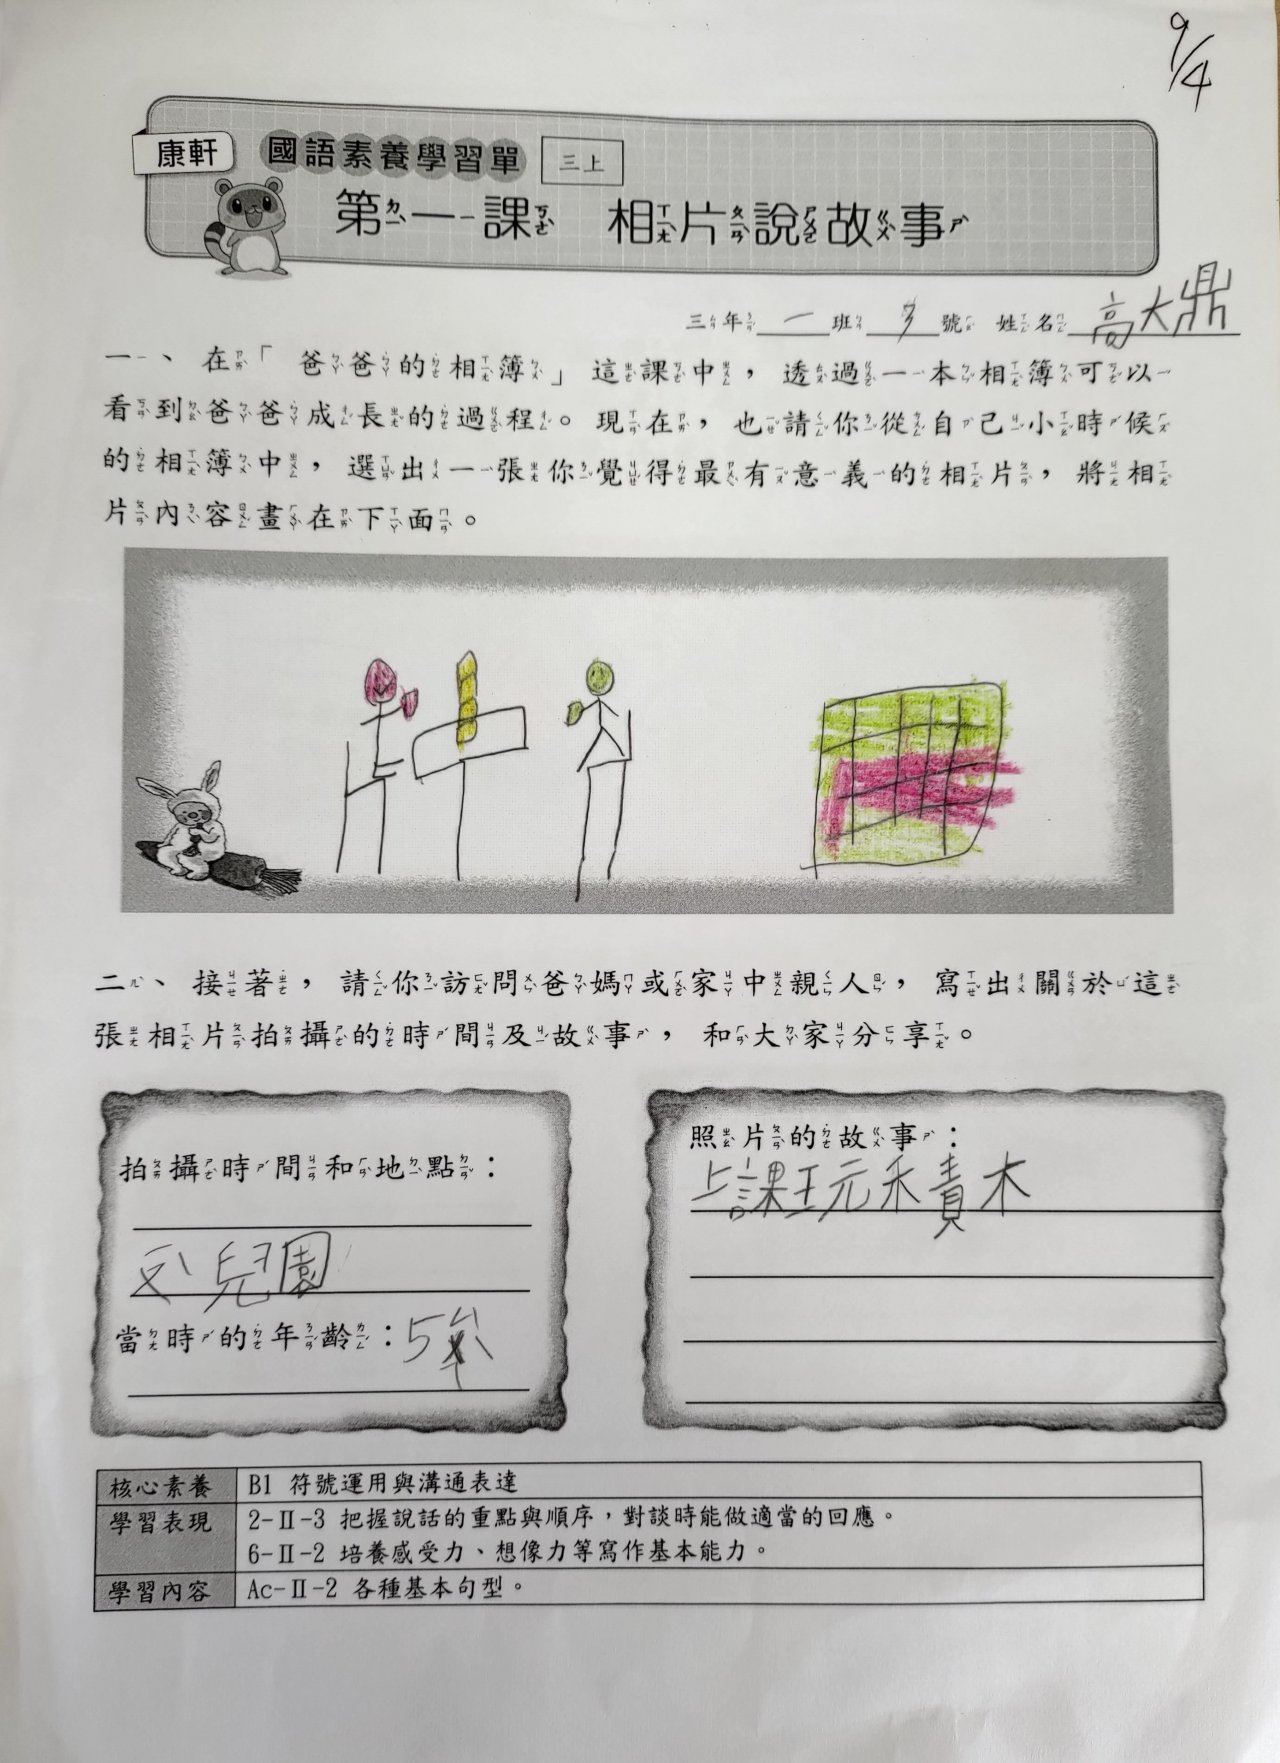 9/4
康軒 國語素養學習單 三上
第一課 相片說故事
三年一班3號 姓名高大鼎
一、在「爸爸的相簿」這課中，透過一本相簿可以
看到爸爸成長的過程。現在，也請你從自己小時候
的相簿中，選出一張你覺得最有意義的相片，將相
片內容畫在下面。
二、接著，請你訪問爸媽或家中親人，寫出關於這
張相片拍攝的時間及故事，和大家分享。
拍攝時間和地點：
兒園
當時的年齡：5
照片的故事：
上課玩禾責木
核心素養 B1 符號運用與溝通表達
學習表現 2-Ⅱ-3 把握說話的重點與順序，對談時能做適當的回應。
6-Ⅱ-2 培養感受力、想像力等寫作基本能力。
學習內容 Ac-Ⅱ-2 各種基本句型。